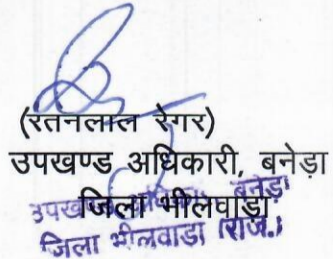 (रतनलाल रेगर)
उपखण्ड अधिकारी, बनेड़ा
जिला भीलवाड़ा
उपखण्ड बनेड़ा
जिला भीलवाडा (राज.)